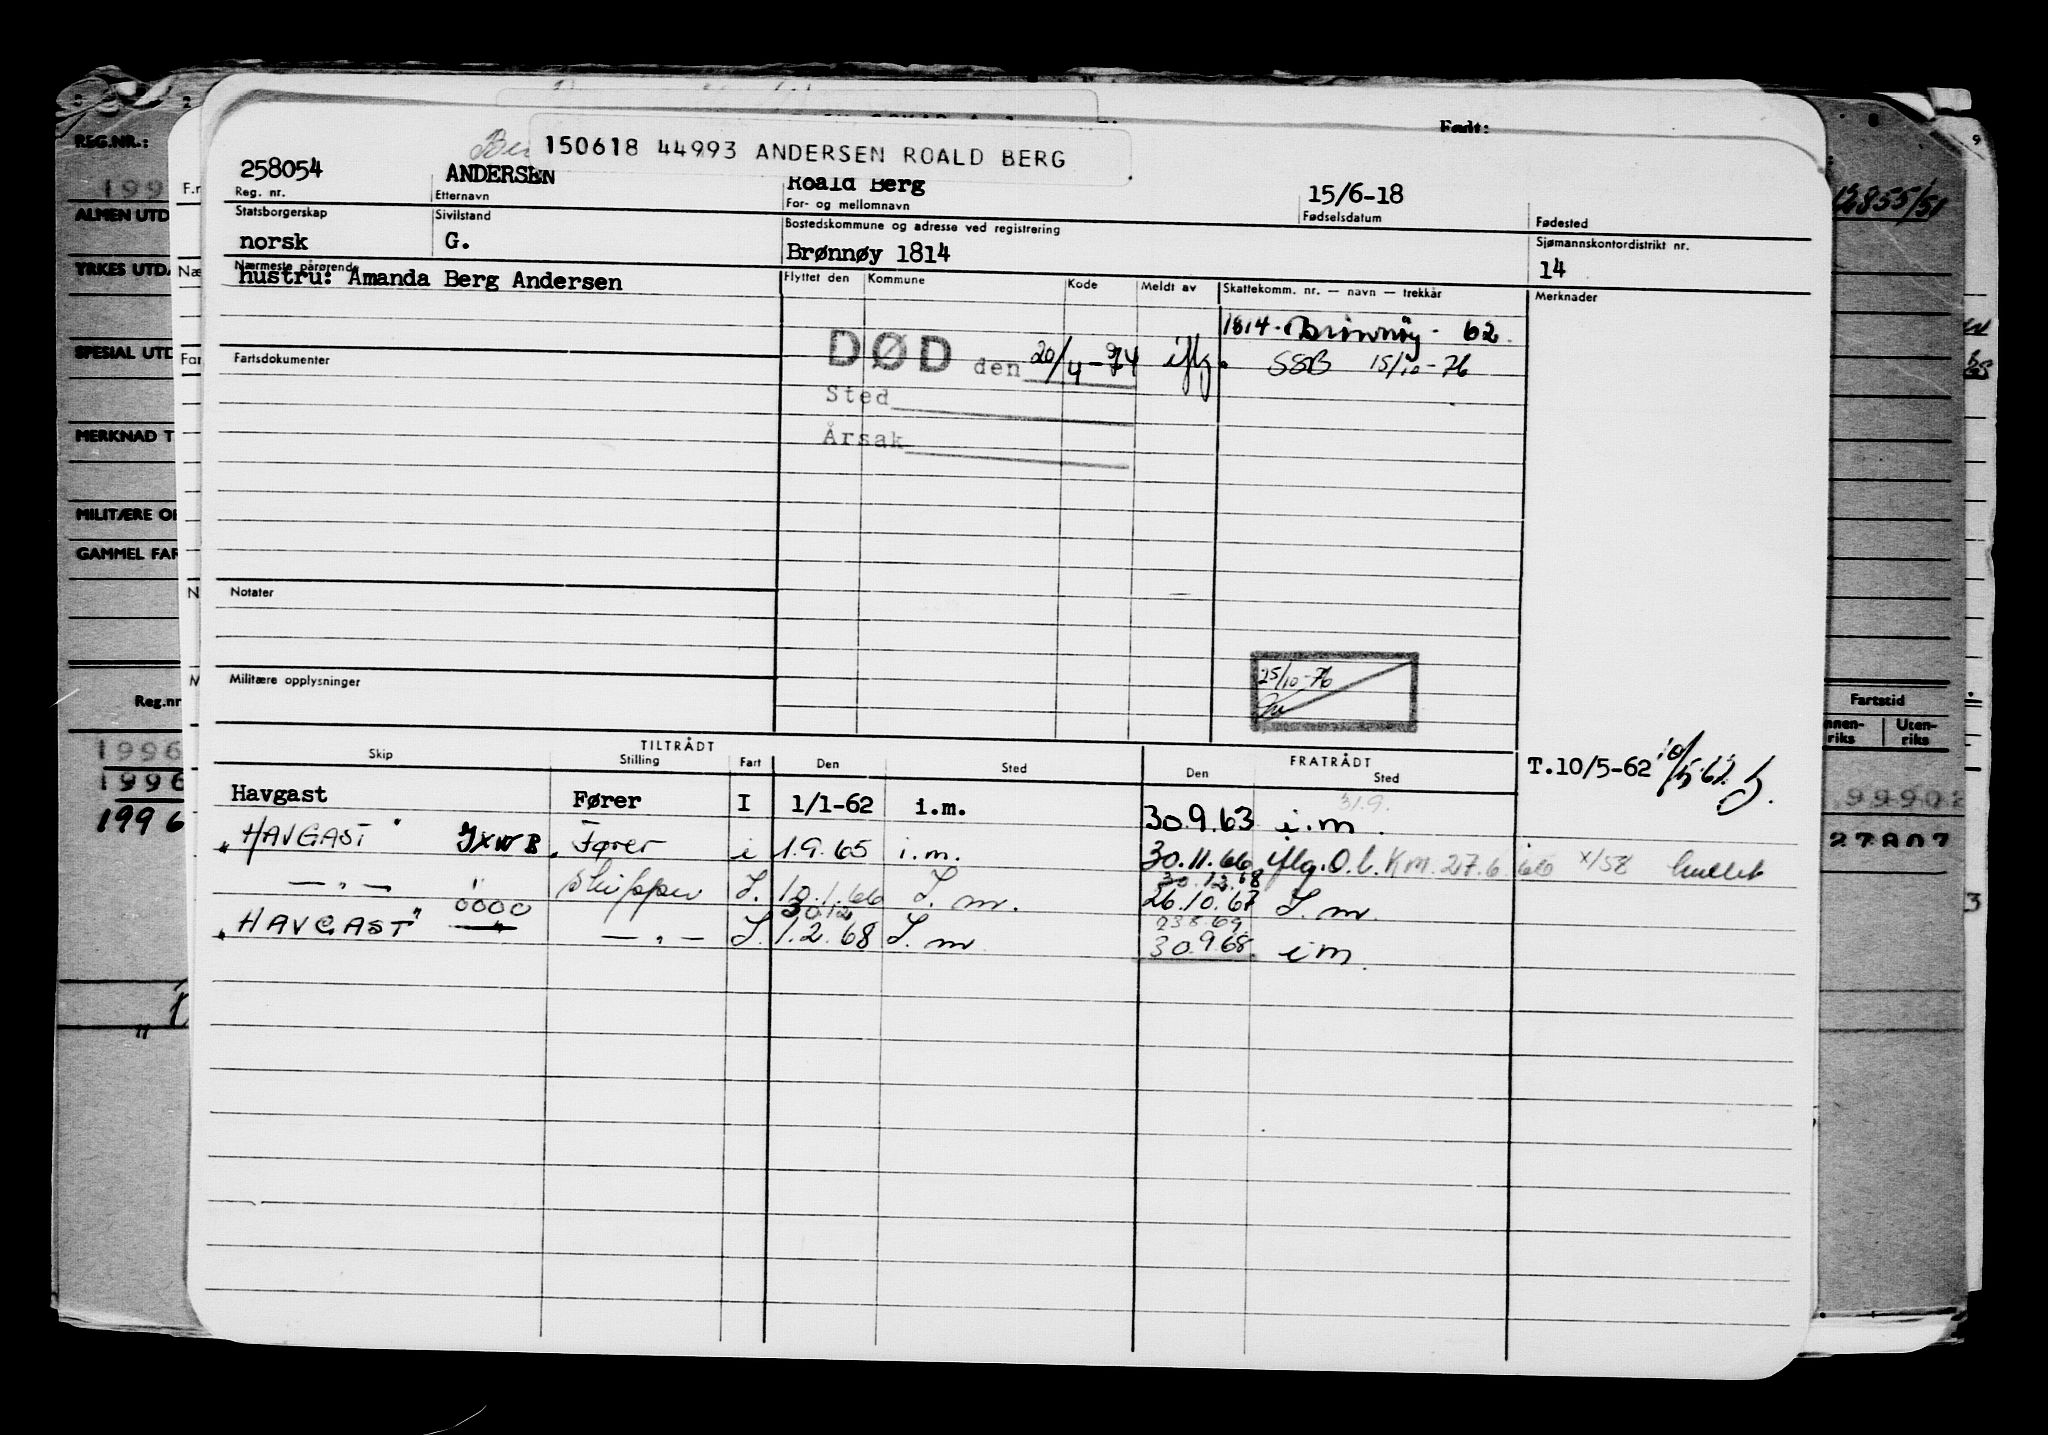 Født:
150618 44993 ANDERSEN ROALD BERG
258054 ANDERSEN Roald Berg 15/6-18
Reg. nr. Etternavn For- og mellomnavn Fødselsdatum Fødested
Statsborgerskap Sivilstand Bostedskommune og adresse ved registrering Sjømannskontordistrikt nr.
norsk G. Brønnøy 1814 14
Nærmeste pårørende Flyttet den Kommune Kode Meldt av Skattekomm. nr. — navn — trekkår Merknader
hustru: Amanda Berg Andersen
1814 - Brønnøy - 62
Fartsdokumenter DØD den 20/4-74 iflg. SSB 15/10-76
Sted
Årsak
Notater
Militære opplysninger
25/10-76
TILTRÅDT FRATRÅDT
Skip Stilling Fart Den Sted Den Sted
T.10/5-62 10/5-62
Havgast Fører I 1/1-62 i.m. 30.9.63 i.m. 31.9.
"HAVGAST" JXWB Fører i 1.9.65 i.m. 30.11.66 iflg. O.l. Km. 27.6.66 x/58
— " — Skipper I. 10.1.66 I. m. 26.10.67 I. m. 30.12.68
30.12 23.8.69
"HAVGAST" OOOO — " — I. 1.2.68 I. m 30.9.68 i m.
REG.NR.:
199
ALMEN UTD
YRKES UTDA
SPESIAL UTD
MERKNAD T
MILITÆRE OP
GAMMEL FAR
Reg.nr
1996
1996
1996
12855/51
Fartstid
nnen-riks Uten-riks
99902
27807